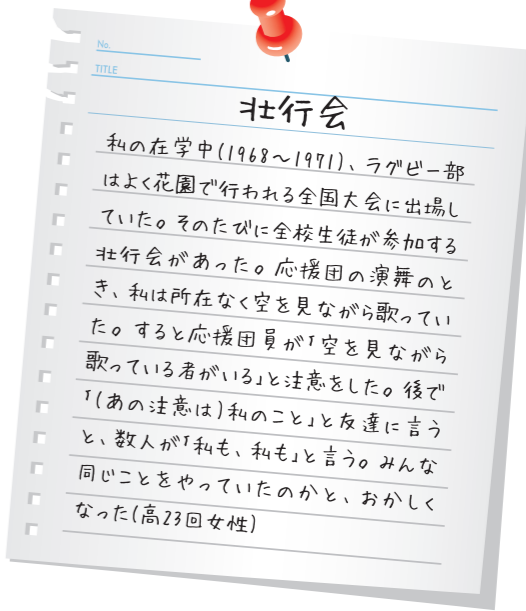 No.
TITLE
壮行会
私の在学中(1968～1971)、ラグビー部
はよく花園で行われる全国大会に出場し
ていた。そのたびに全校生徒が参加する
壮行会があった。応援団の演舞のと
き、私は所在なく空を見ながら歌ってい
た。すると応援団員が「空を見ながら
歌っている者がいる」と注意をした。後で
「(あの注意は)私のこと」と友達に言う
と、数人が「私も、私も」と言う。みんな
同じことをやっていたのかと、おかしく
なった(高23回女性)